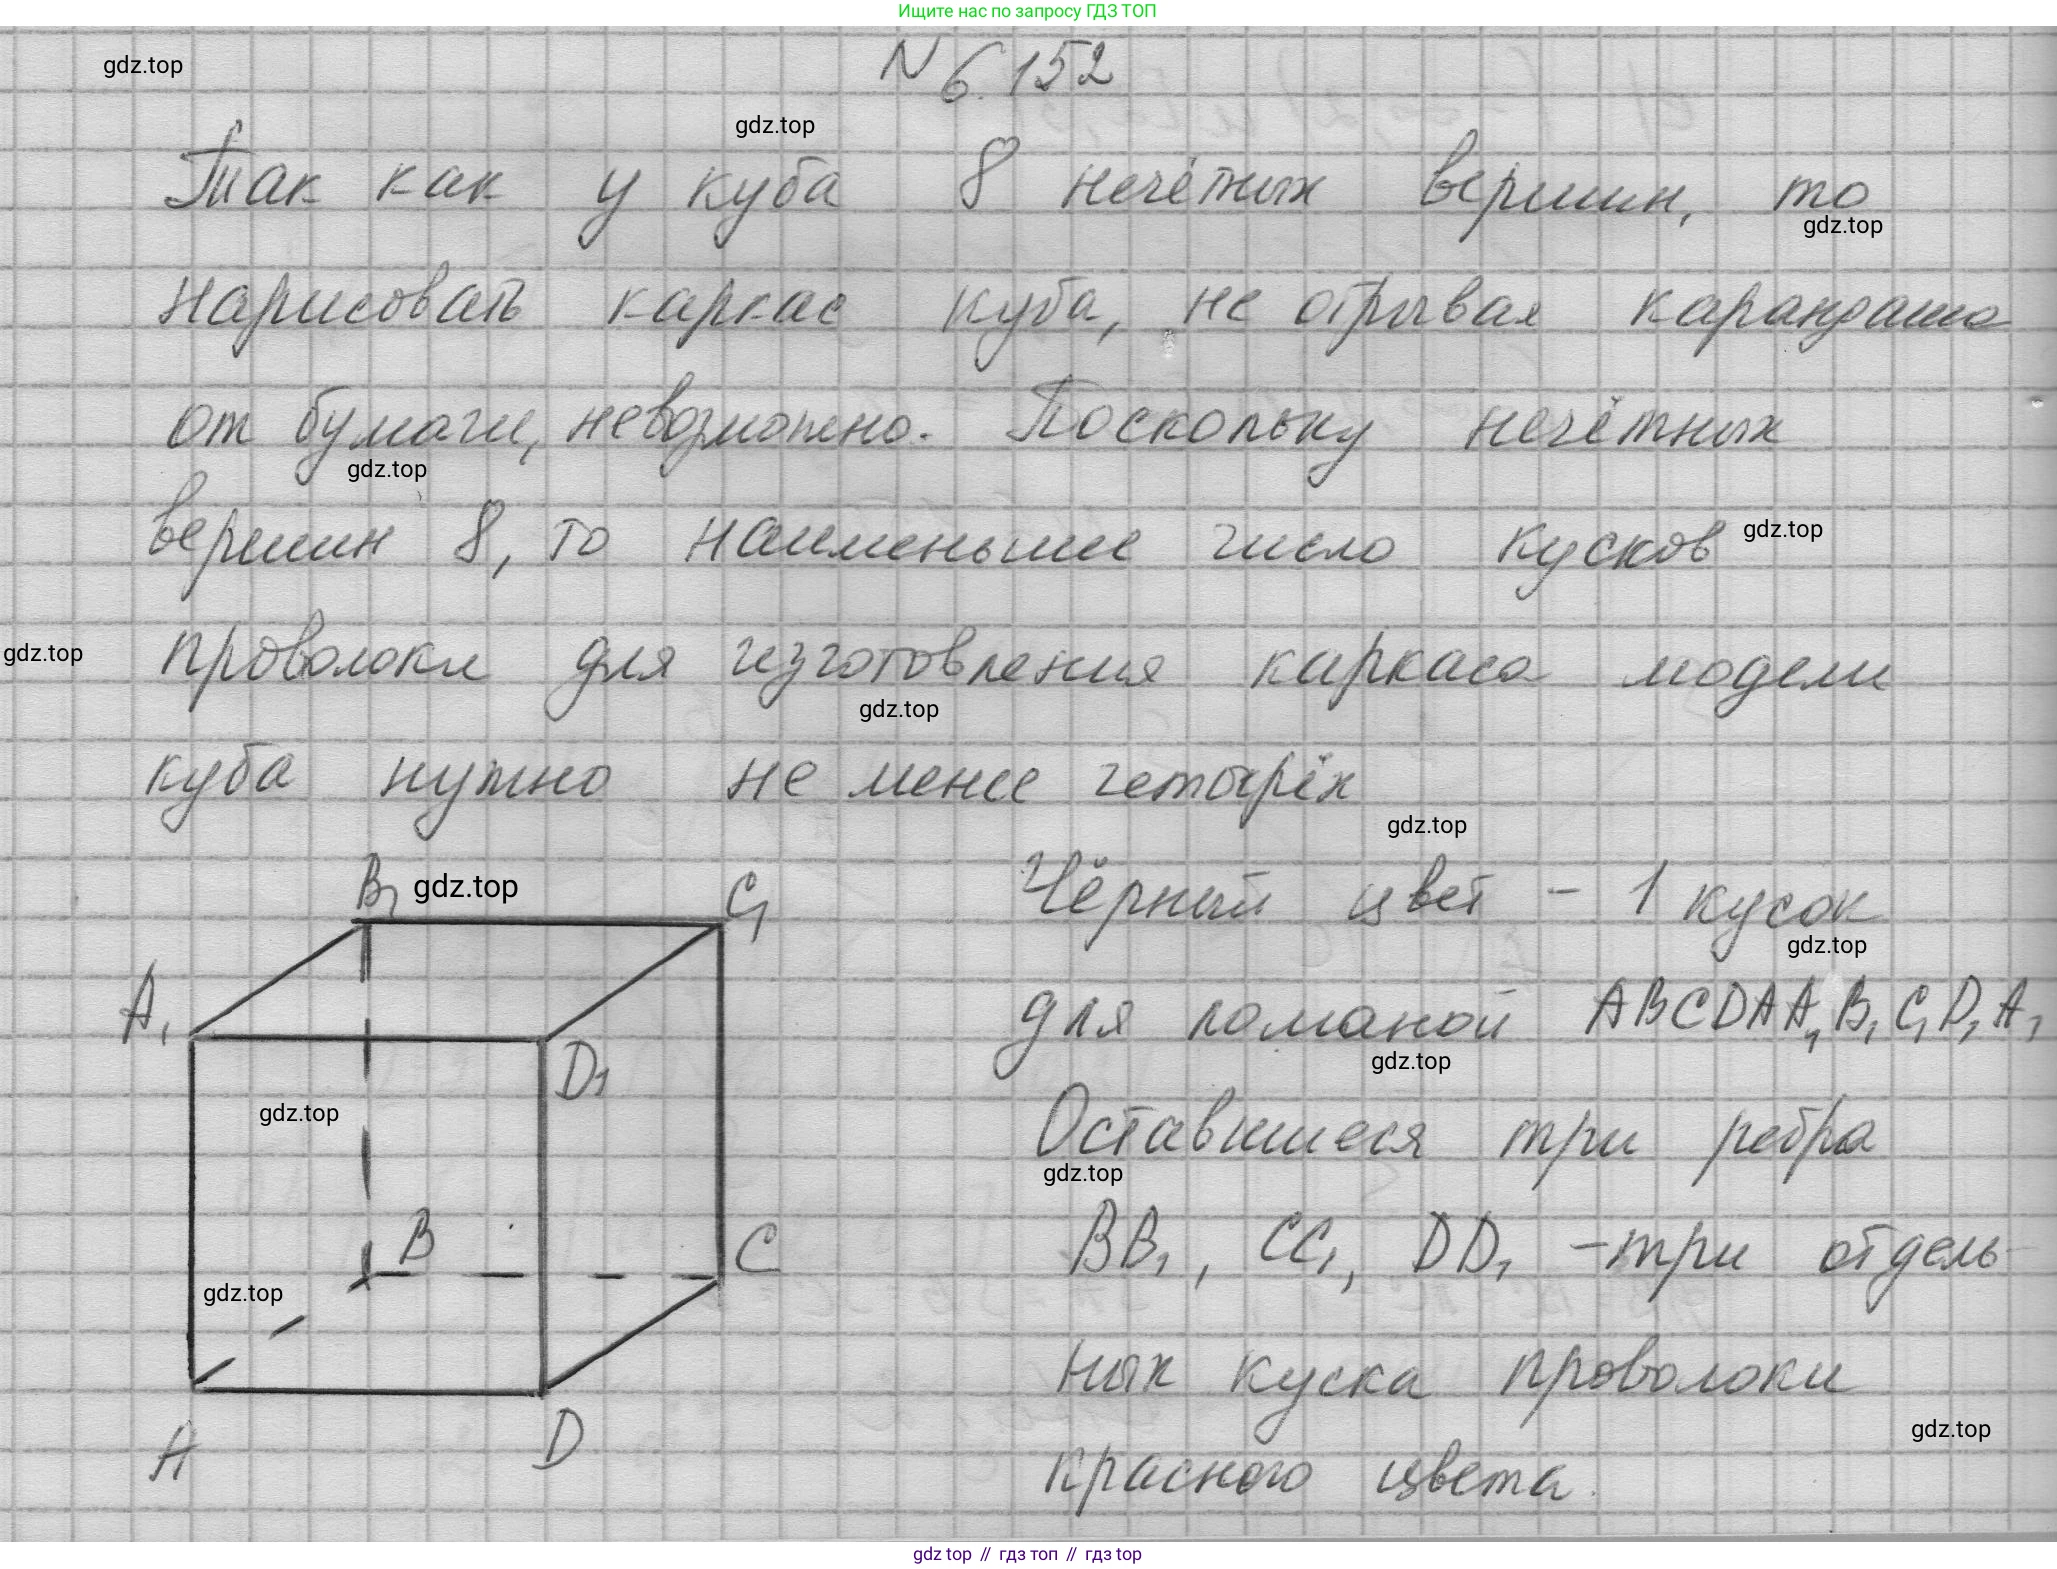 Ищите нас по запросу ГДЗ ТОП
N 6.152
gdz.top
gdz.top
Так как у куба 8 нечётных вершин, то
gdz.top
нарисовать каркас куба, не отрывая карандаша
от бумаги, невозможно. Поскольку нечётных
gdz.top
вершин 8, то наименьшее число кусков
gdz.top
проволоки для изготовления каркаса модели
gdz.top
gdz.top
куба нужно не менее четырёх
gdz.top
B₁ gdz.top C₁
Чёрный цвет - 1 кусок
gdz.top
A₁
для ломаной ABCDAA₁B₁C₁D₁A₁
gdz.top
D₁
gdz.top
Оставшиеся три ребра
gdz.top
B C
BB₁, CC₁, DD₁ - три отдель-
gdz.top
ных куска проволоки
gdz.top
A D
красного цвета.
gdz top // гдз топ // gdz top